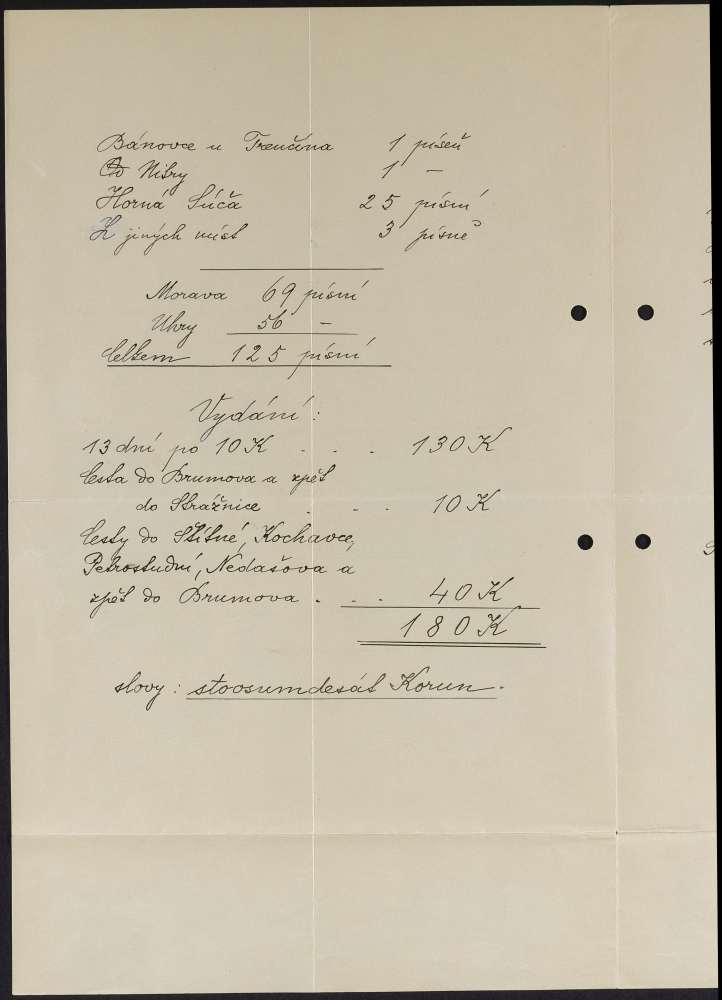 Bánovce u Trenčína 1 píseň
Od Nitry 1 –
Horná Súča 25 písní
Z jiných míst 3 písně
Morava 69 písní
Uhry 56 –
Celkem 125 písní
Vydání:
13 dní po 10 K . . . 130 K
Cesta do Brumova a zpět
do Strážnice . . . 10 K
Cesty do Štítné, Kochavce,
Petrostudní, Nedašova a
zpět do Brumova . . . 40 K
180 K
slovy: stoosumdesát Korun.